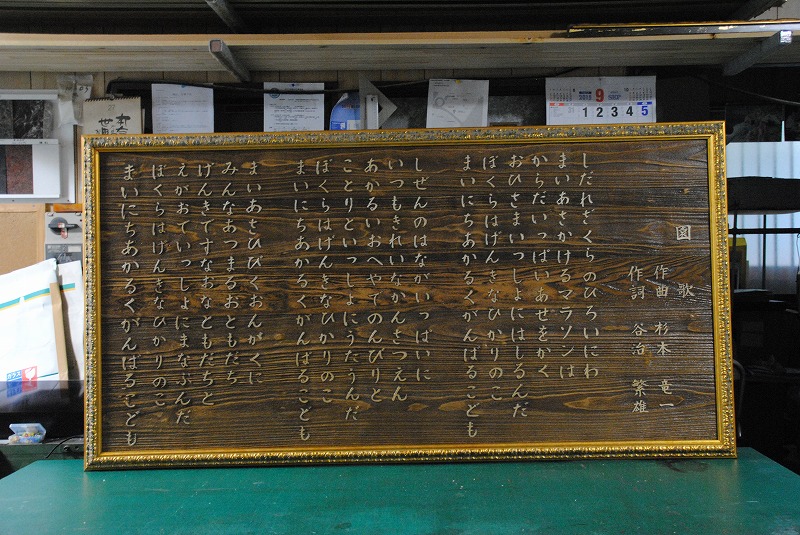 園歌
作曲 杉本 竜一
作詞 谷治 繁雄
しだれざくらのひろいにわ
まいあさかけるマラソンは
からだいっぱいあせをかく
おひさまいっしょにはしるんだ
ぼくらはげんきなひかりのこ
まいにちあかるくがんばるこども
しぜんのはながいっぱいに
いつもきれいなかんきつえん
あかるいおへやでのんびりと
ことりといっしょにうたうんだ
ぼくらはげんきなひかりのこ
まいにちあかるくがんばるこども
まいあさひびくおんがくに
みんなあつまるおともだち
げんきですなおなともだちと
えがおでいっしょにまなぶんだ
ぼくらはげんきなひかりのこ
まいにちあかるくがんばるこども
9
1 2 3 4 5